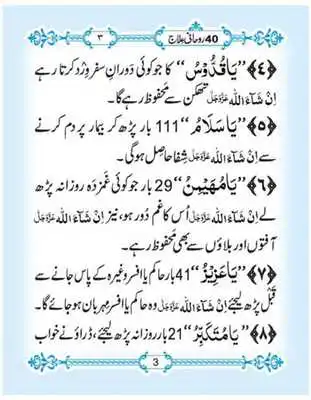 40 روحانی علاج ۳
﴿٤﴾ ’’یَا قُدُّوْسُ‘‘ کا جو کوئی دورانِ سفر وِرد کرتا رہے
اِنْ شَآءَ اللہ عَزَّوَجَلَّ تھکن سے محفوظ رہے گا۔
﴿٥﴾ ’’یَا سَلَامُ‘‘ 111 بار پڑھ کر بیمار پر دم کرنے
سے اِنْ شَآءَ اللہ عَزَّوَجَلَّ شِفا حاصل ہوگی۔
﴿٦﴾ ’’یَا مُهَیْمِنُ‘‘ 29 بار جو کوئی غمزدہ روزانہ پڑھ
لے اِنْ شَآءَ اللہ عَزَّوَجَلَّ اُس کا غم دُور ہو، نیز اِنْ شَآءَ اللہ عَزَّوَجَلَّ
آفتوں اور بلاؤں سے بھی محفوظ رہے۔
﴿٧﴾ ’’یَا عَزِیْزُ‘‘ 41 بار حاکم یا افسر وغیرہ کے پاس جانے سے
قَبْل پڑھ لیجئے اِنْ شَآءَ اللہ عَزَّوَجَلَّ وہ حاکم یا افسر مہربان ہوجائے گا۔
﴿٨﴾ ’’یَا مُتَکَبِّرُ‘‘ 21 بار روزانہ پڑھ لیجئے، ڈراؤنے خواب
3